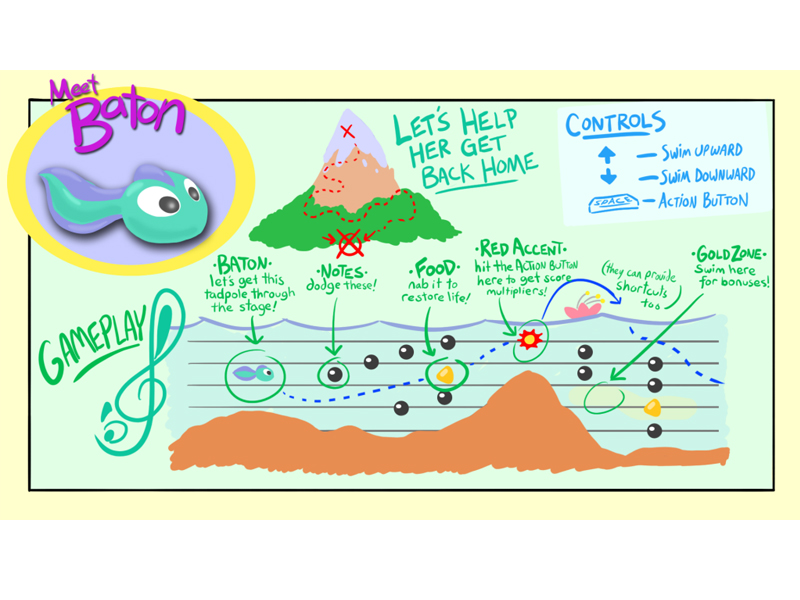 Meet
Baton
LET'S HELP
HER GET
BACK HOME
CONTROLS
— SWIM UPWARD
— SWIM DOWNWARD
SPACE — ACTION BUTTON
GAMEPLAY
·BATON·
let's get this
tadpole through
the stage!
·NOTES·
dodge these!
·FOOD·
nab it to
restore life!
·RED ACCENT·
hit the ACTION BUTTON
here to get score
multipliers!
(they can provide
shortcuts
too)
·GOLD ZONE·
Swim here
for bonuses!